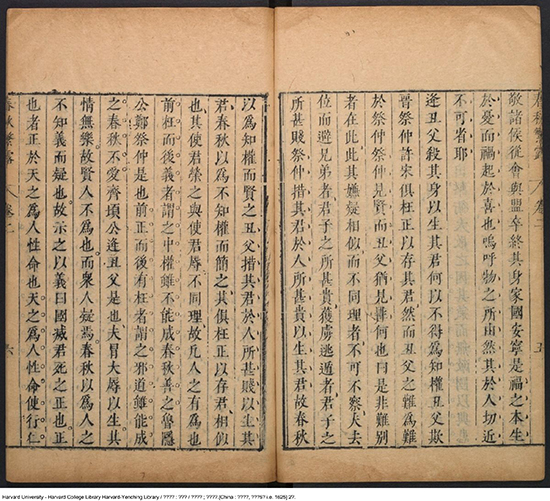 春秋繁露 卷二 五
敬諸侯從會與盟卒終其身家國安寧是福之本生
於憂而禍起於喜也嗚呼物之所由然其於人切近
不可省耶
逄丑父殺其身以生其君何以不得為知權丑父欺
晉祭仲許宋俱枉正以存其君然而丑父之難為難
於祭仲祭仲見賢而丑父猶見非何也曰是非難別
者在此此其嫌疑相似而不同理者不可不察夫去
位而避兄弟者君子之所甚貴獲虜逃遁者君子之
所甚賤祭仲措其君於人所甚貴以生其君故春秋
以為知權而賢之丑父措其君於人所甚賤以生其
君春秋以為不知權而簡之其俱枉正以存君相似
也其使君榮之與使君辱不同理故凡人之有為也
前枉而後義者謂之中權雖不能成春秋善之魯隱
公鄭祭仲是也前正而後有枉者謂之邪道雖能成
之春秋不愛齊頃公逄丑父是也夫冒大辱以生其
情無樂故賢人不為也而衆人疑焉春秋以為人之
不知義而疑也故示之以義曰國滅君死之正也正
也者正於天之為人性命也天之為人性命使行仁
春秋繁露 卷二 六
Harvard University - Harvard College Library Harvard-Yenching Library / ???? : ??? / ???? ; ????.[China : ????, ???6? i.e. 1625] 27.